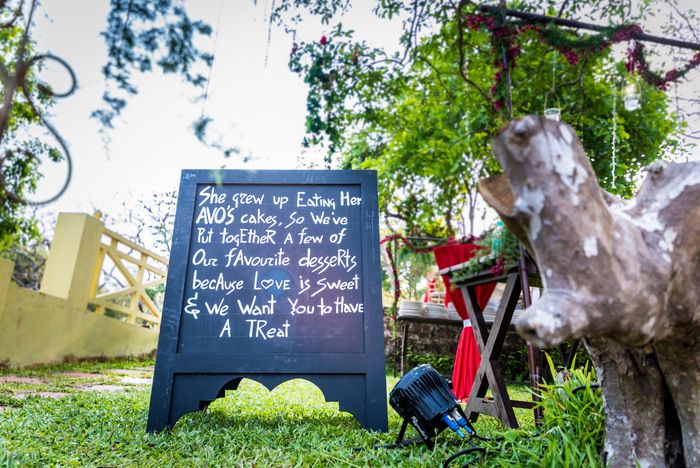 She grew up Eating Her
AVO'S cakes, So We've
Put togEtHeR A few of
Our fAvourite desseRts
becAuse Love is Sweet
& We Want You to HAve
A TReat